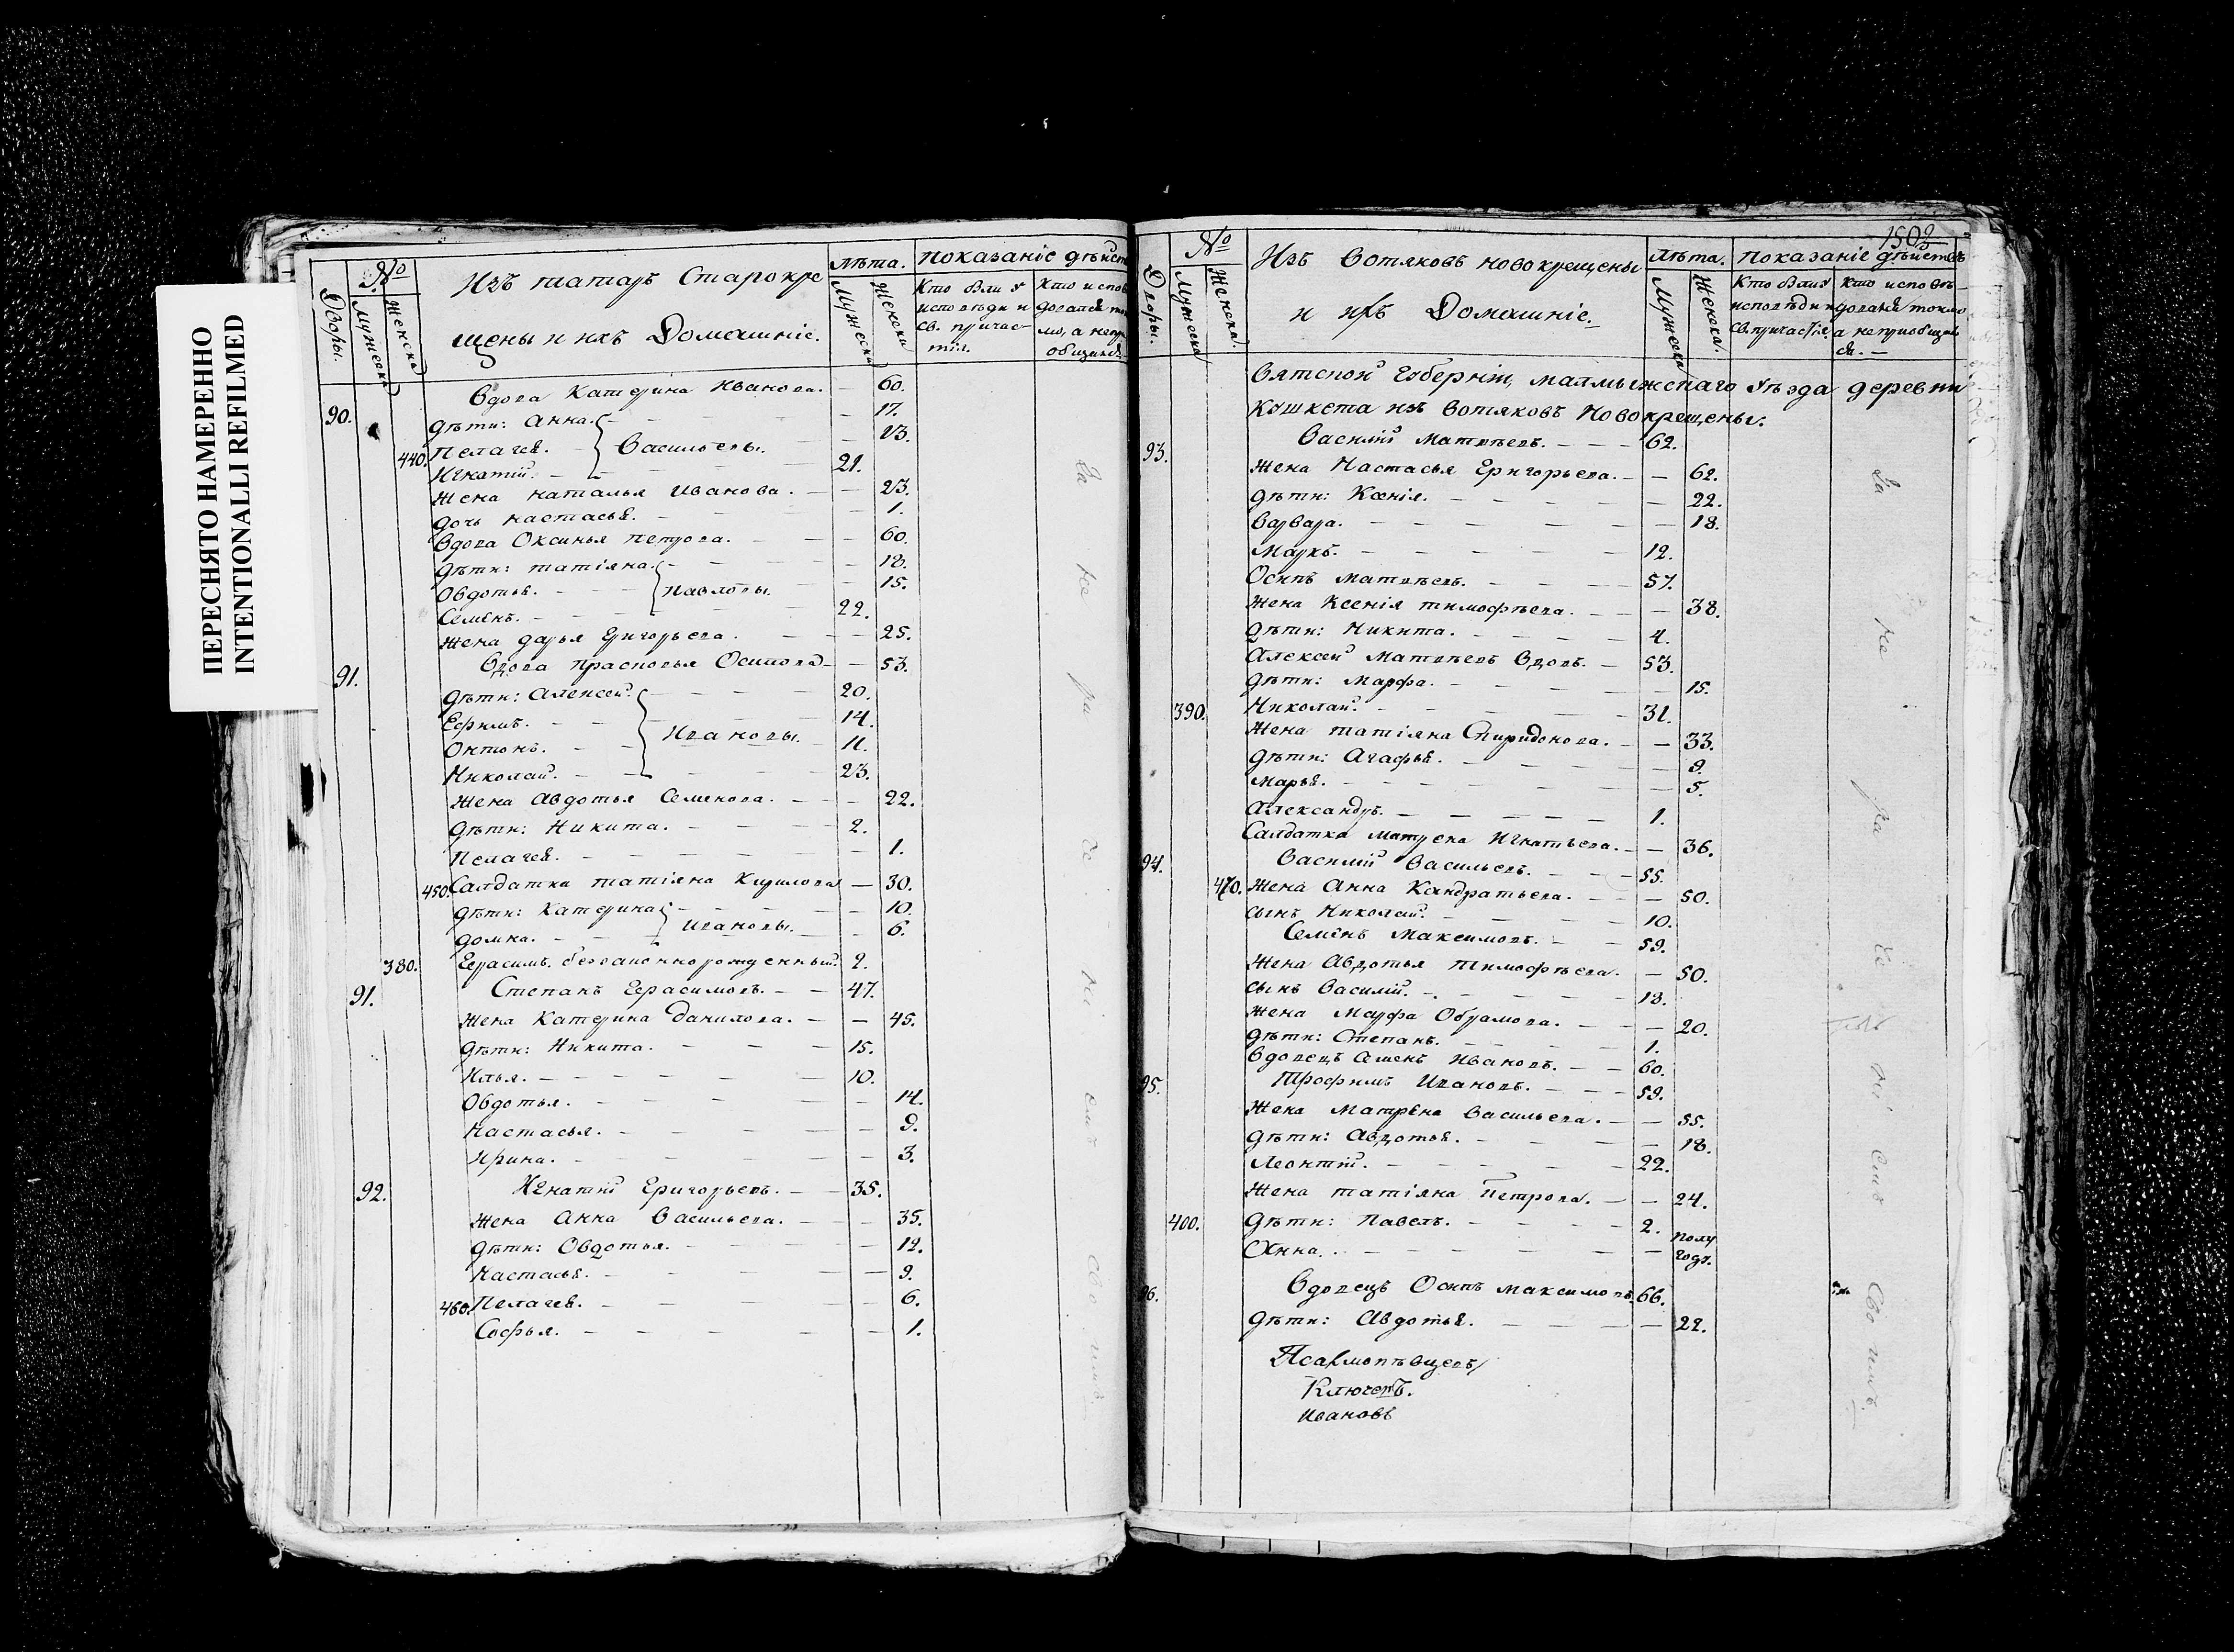 ПЕРЕСНЯТО НАМЕРЕННО
INTENTIONALLI REFILMED
Дворы.
№
Мужеска
Женска
Изъ татаръ Старокре
щены и ихъ Домашніе.
Лѣта.
Мужеска
Женска
показаніе дѣйст
Кто были у исповѣди и св. причас- тія.
Кто испов довался то мо, а непр общился
90. Вдова Катерина Иванова. — 60.
дѣти: Анна. — 17.
440. Пелагея. — Васильевы. — 23.
Игнатій. — 21.
жена наталья Иванова. — 23.
дочь настасья. — 1.
вдова Оксинья петрова. — 60.
дѣти: татіяна. — 18.
Овдотья. — павловы. — 15.
Семенъ. — 22.
жена дарья Григорьева. — 25.
91. Вдова прасковья Осипова — 53.
дѣти: Алексей. — 20.
Ефимъ. — 14.
Онтонъ. — Ивановы. — 11.
Николай. — 23.
жена Авдотья Семенова. — 22.
дѣти: Никита. — 2.
Пелагея. — 1.
450. Салдатка татіяна Кирилова — 30.
дѣти: Катерина — 10.
домна. — Ивановы. — 6.
380. Герасимъ. беззаконнорожденный. 2.
91. Степанъ Герасимовъ. — 47.
жена Катерина данилова. — 45.
дѣти: Никита. — 15.
Илья. — 10.
Овдотья. — 14.
Настасья. — 9.
Ирина. — 3.
92. Игнатій Григорьевъ. — 35.
жена Анна Васильева. — 35.
дѣти: Овдотья. — 12.
Настасья. — 9.
460. Пелагея. — 6.
Софья. — 1.
Дворы.
№
Мужеска
Женска.
Изъ вотяковъ новокрещены
и ихъ Домашніе.
Лѣта.
Мужеска
Женска.
показаніе дѣйствъ
Кто были у исповѣди и св. причастія.
Кто исповѣ- довался токмо а непріобщил ся. —
Вятской губерніи, малмыжскаго уѣзда деревни
Кушкета изъ вотяковъ новокрещены.
93. Василий матвѣевъ. — 62.
жена Настасья Григорьева. — 62.
дѣти: Ксенія. — 22.
Варвара. — 18.
Маркъ. — 12.
Осипъ матвѣевъ. — 57.
жена Ксенія тимофѣева. — 38.
дѣти: Никита. — 4.
Алексей матвѣевъ вдовъ. — 53.
дѣти: Марфа. — 15.
390. Николай. — 31.
жена татіяна Спиридонова. — 33.
дѣти: Агафья. — 9.
Марья. — 5.
Александръ. — 1.
Салдатка матрена Игнатьева. — 36.
94. Василий Васильевъ. — 55.
470. жена Анна Кандратьева. — 50.
сынъ Николай. — 10.
Семенъ Максимовъ. — 59.
жена Авдотья тимофѣева. — 50.
сынъ Василій. — 18.
жена Марфа Обрамова. — 20.
дѣти: Степанъ. — 1.
вдовецъ Семенъ Ивановъ. — 60.
95. Трофимъ Ивановъ. — 59.
жена матрена Васильева. — 55.
дѣти: Авдотья. — 18.
Леонтій. — 22.
жена татіяна Петрова. — 24.
400. дѣти: Павелъ. — 2.
Анна. — полу годъ.
96. Вдовецъ Осипъ максимовъ. 66.
дѣти: Авдотья. — 22.
Псалмопѣвцевъ
Ключевъ.
Ивановъ